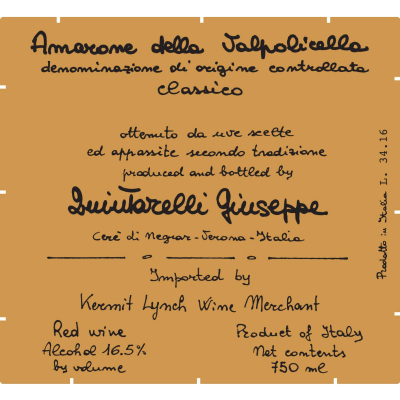 Amarone della Valpolicella
denominazione di origine controllata
classico
ottenuto da uve scelte
ed appassite secondo tradizione
produced and bottled by
Quintarelli Giuseppe
Cerè di Negrar-Verona-Italia
Imported by
Kermit Lynch Wine Merchant
Red wine
Alcohol 16.5%
by volume
Product of Italy
Net contents
750 ml
Prodotto in Italia L. 34.16